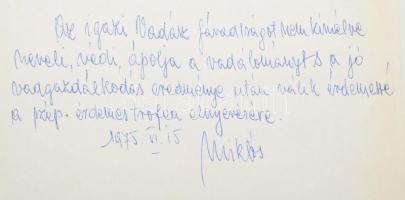 Az igazi Vadász fáradtságot nem kimélve
neveli, védi, ápolja a vadálományt s a jó
vadgazdálkodás eredménye után válik érdemessé
a szép érdemes trófea elnyerésére.
1975. VI. 15
Miklós